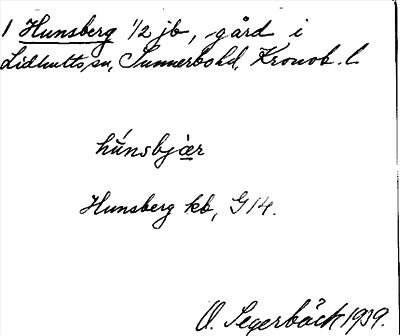 1 Hunsberg 1/2 jb, gård i
Lidhults sn, Sunnerbo hd, Kronob. l.
húnsbjær
Hunsberg kb, G 14.
O. Segerbäck 1939.